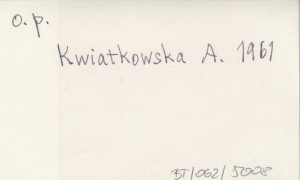 o. p.
Kwiatkowska A. 1961
BT/062/5008